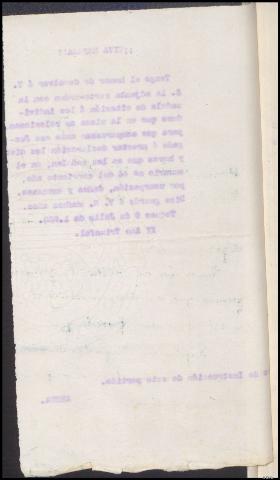 ¡¡VIVA ESPAÑA!!
Tengo el honor de devolver á V.
S. la adjunta carta-orden con la
cédula de citación á los indivi-
duos que en la misma se relacionan
para que comparezcan ante ese Juz-
gado á prestar declaración los días
y horas que se les señalan, en el
sumario nº 54 del corriente año,
por usurpación, daños y amenazas.
Dios guarde á V. S. muchos años.
Yeques 9 de Julio de 1.939.
Año Triunfal.
de Instrucción de este partido.